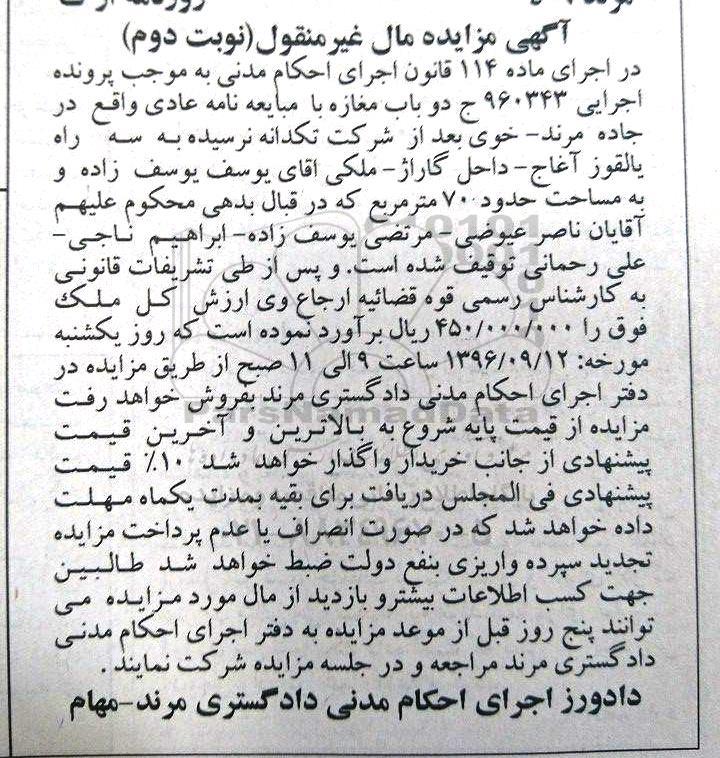 آگهی مزایده مال غیرمنقول(نوبت دوم)
در اجرای ماده ۱۱۴ قانون اجرای احکام مدنی به موجب پرونده
اجرایی ۹۶۰۳۴۳ ج دو باب مغازه با مبایعه نامه عادی واقع در
جاده مرند- خوی بعد از شرکت تکدانه نرسیده به سه راه
یالقوز آغاج- داخل گاراژ- ملکی اقای یوسف یوسف زاده و
به مساحت حدود ۷۰ مترمربع که در قبال بدهی محکوم علیهم
آقایان ناصر عیوضی- مرتضی یوسف زاده- ابراهیم ناجی-
علی رحمانی توقیف شده است. و پس از طی تشریفات قانونی
به کارشناس رسمی قوه قضائیه ارجاع وی ارزش کل ملک
فوق را ۴۵۰/۰۰۰/۰۰۰ ریال برآورد نموده است که روز یکشنبه
مورخه: ۱۳۹۶/۰۹/۱۲ ساعت ۹ الی ۱۱ صبح از طریق مزایده در
دفتر اجرای احکام مدنی دادگستری مرند بفروش خواهد رفت
مزایده از قیمت پایه شروع به بالاترین و آخرین قیمت
پیشنهادی از جانب خریدار واگذار خواهد شد ۱۰٪ قیمت
پیشنهادی فی المجلس دریافت برای بقیه بمدت یکماه مهلت
داده خواهد شد که در صورت انصراف یا عدم پرداخت مزایده
تجدید سپرده واریزی بنفع دولت ضبط خواهد شد طالبین
جهت کسب اطلاعات بیشترو بازدید از مال مورد مزایده می
توانند پنج روز قبل از موعد مزایده به دفتر اجرای احکام مدنی
دادگستری مرند مراجعه و در جلسه مزایده شرکت نمایند .
دادورز اجرای احکام مدنی دادگستری مرند-مهام
ParsNamadData